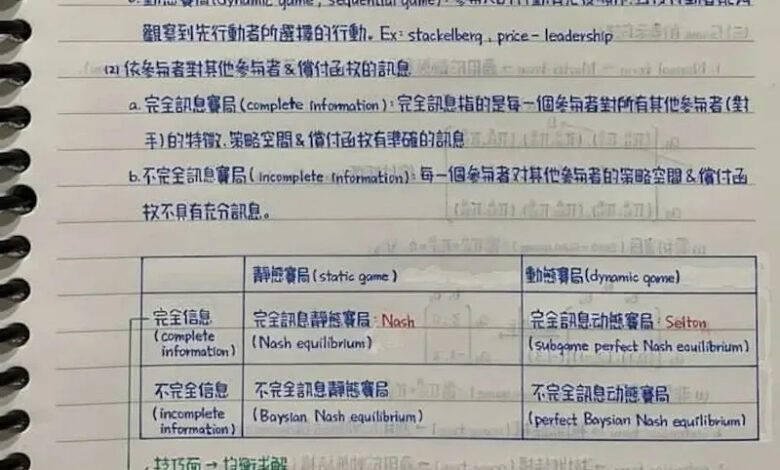 觀察到先行動者所選擇的行動。Ex: stackelberg、price-leadership
(2) 依參与者對其他參与者&償付函权的訊息
a. 完全訊息賽局(complete information): 完全訊息指的是每一個參与者對所有其他參与者(對
手)的特徵、策略空間&償付函权有準確的訊息
b. 不完全訊息賽局(incomplete information): 每一個參与者对其他參与者的策略空間&償付函
权不具有充分訊息。
靜態賽局(static game) 動態賽局(dynamic game)
完全信息 (complete information) 完全訊息靜態賽局: Nash (Nash equilibrium) 完全訊息动態賽局: Selton (subgame perfect Nash equilibrium)
不完全信息 (incomplete information) 不完全訊息靜態賽局 (Baysian Nash equilibrium) 不完全訊息动態賽局 (perfect Baysian Nash equilibrium)
技巧面→均衡求解